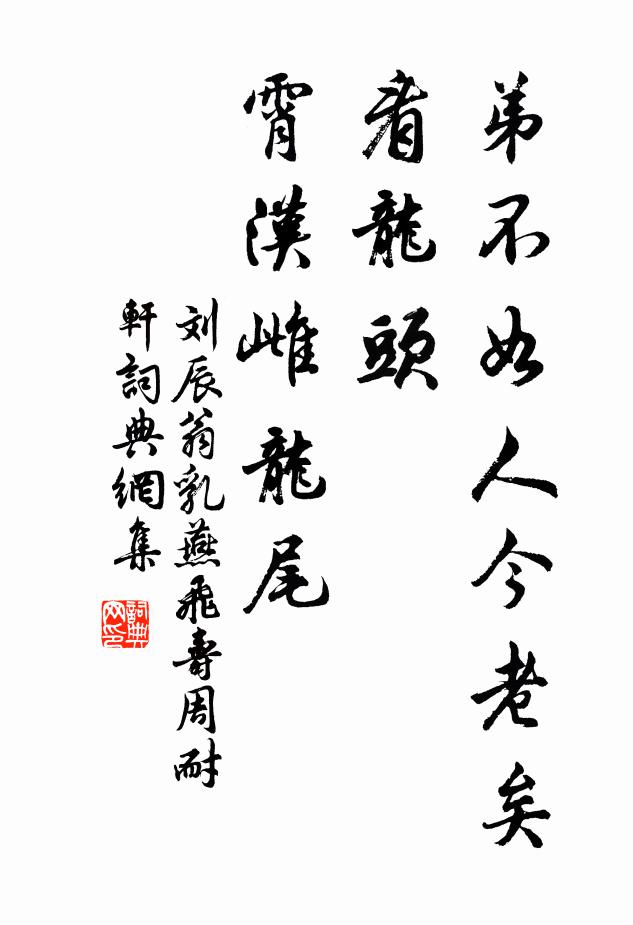 弟不如人今老矣
看龍頭
霄漢雌龍尾
刘辰翁乳燕飛壽周耐
軒詞典網集
詞典网印